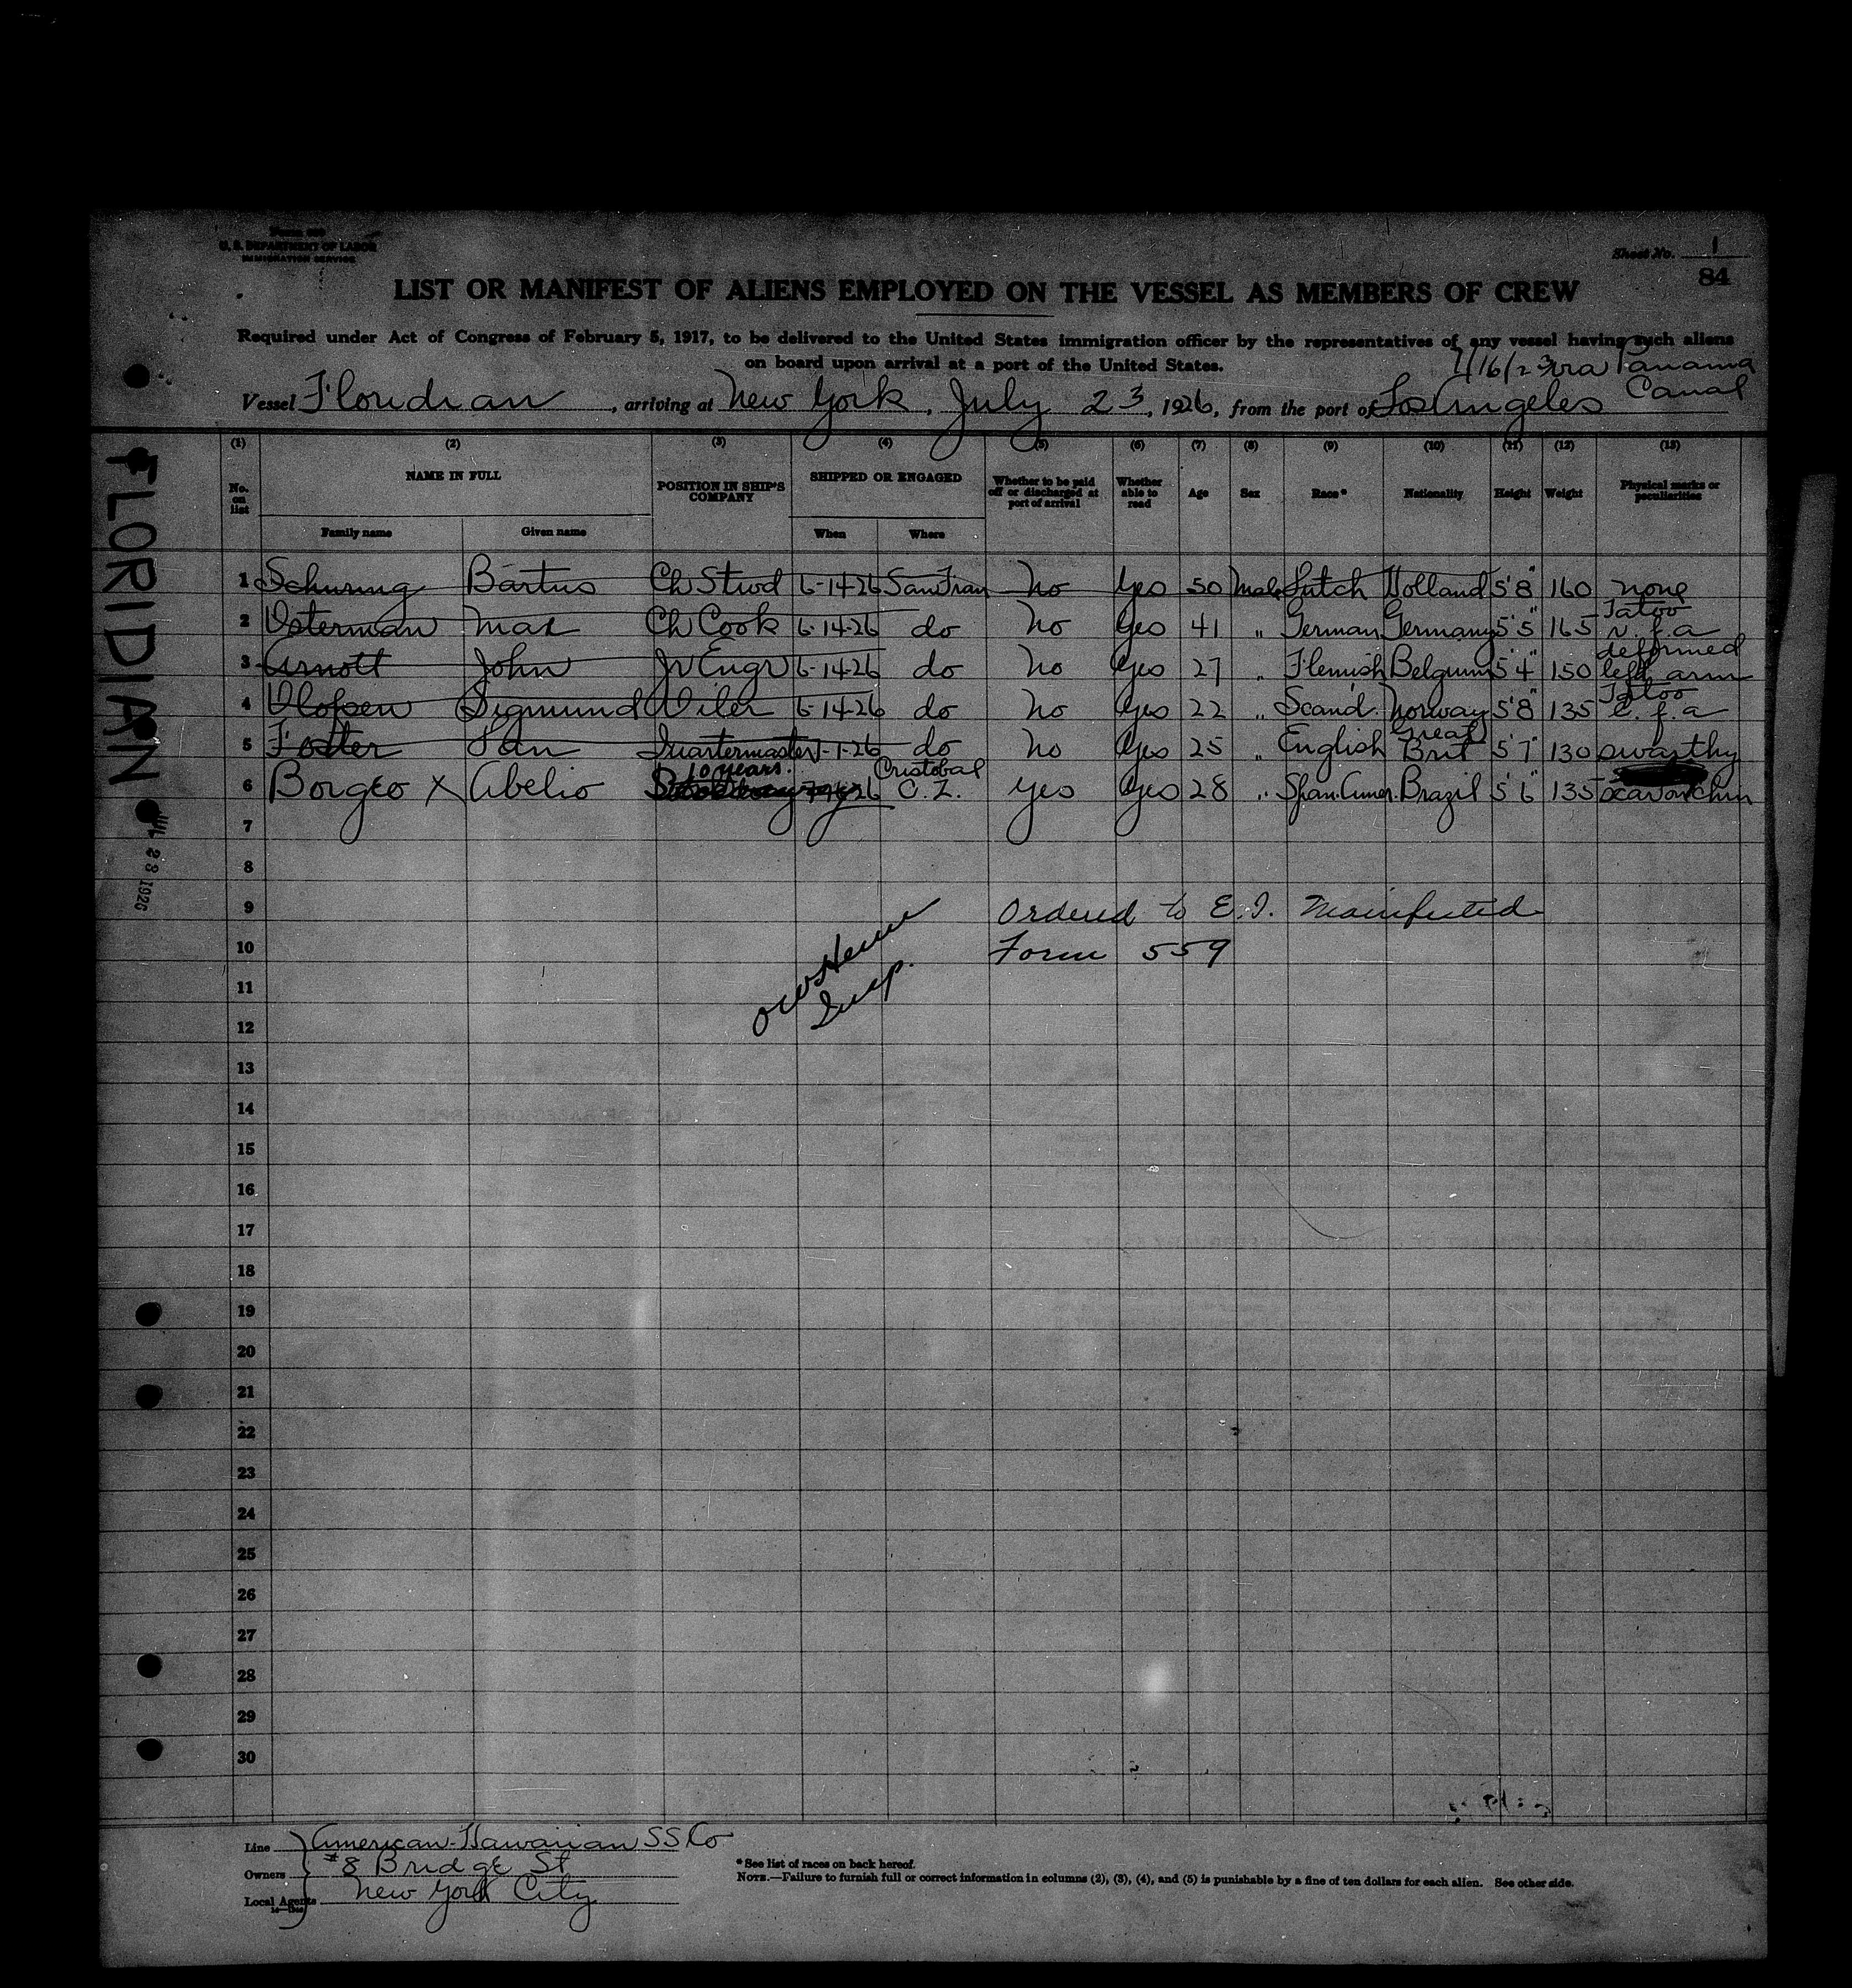 Form 689
U. S. DEPARTMENT OF LABOR
IMMIGRATION SERVICE
Sheet No. 1
84
LIST OR MANIFEST OF ALIENS EMPLOYED ON THE VESSEL AS MEMBERS OF CREW
Required under Act of Congress of February 5, 1917, to be delivered to the United States immigration officer by the representatives of any vessel having such aliens
on board upon arrival at a port of the United States.
via Panama Canal
Vessel Floridian, arriving at New York, July 23, 1926, from the port of Los Angeles
FLORIDIAN
23 1926
(1) (2) (3) (4) (5) (6) (7) (8) (9) (10) (11) (12) (13)
No. on list NAME IN FULL POSITION IN SHIP'S COMPANY SHIPPED OR ENGAGED Whether to be paid off or discharged at port of arrival Whether able to read Age Sex Race* Nationality Height Weight Physical marks or peculiarities
Family name Given name When Where
1 Schuring Bartus Ch Stwd 6-14-26 San Fran no Yes 50 Male Dutch Holland 5'8" 160 none
2 Osterman Max Ch Cook 6-14-26 do no Yes 41 " German Germany 5'5" 165 Tatoo r. f. a
3 Arnott John Jr Engr 6-14-26 do no Yes 27 " Flemish Belgium 5'4" 150 deformed left arm
4 Olofsen Sigmund Oiler 6-14-26 do no Yes 22 " Scand. Norway 5'8" 135 Tatoo l. f. a
5 Foster Dan Quartermaster 7-1-26 do no Yes 25 " English Great Brit 5'7" 130 swarthy
6 Borgeo X Abelio 10 years. Cristobal C.Z. Yes Yes 28 " Span. Amer. Brazil 5'6" 135 scar on chin
7
8
9 Ordered to E.I. Manifested
10 Form 559
Insp.
11
12
13
14
15
16
17
18
19
20
21
22
23
24
25
26
27
28
29
30
Line American-Hawaiian SS Co
Owners #8 Bridge St
Local Agents New York City
* See list of races on back hereof.
NOTE.—Failure to furnish full or correct information in columns (2), (3), (4), and (5) is punishable by a fine of ten dollars for each alien. See other side.